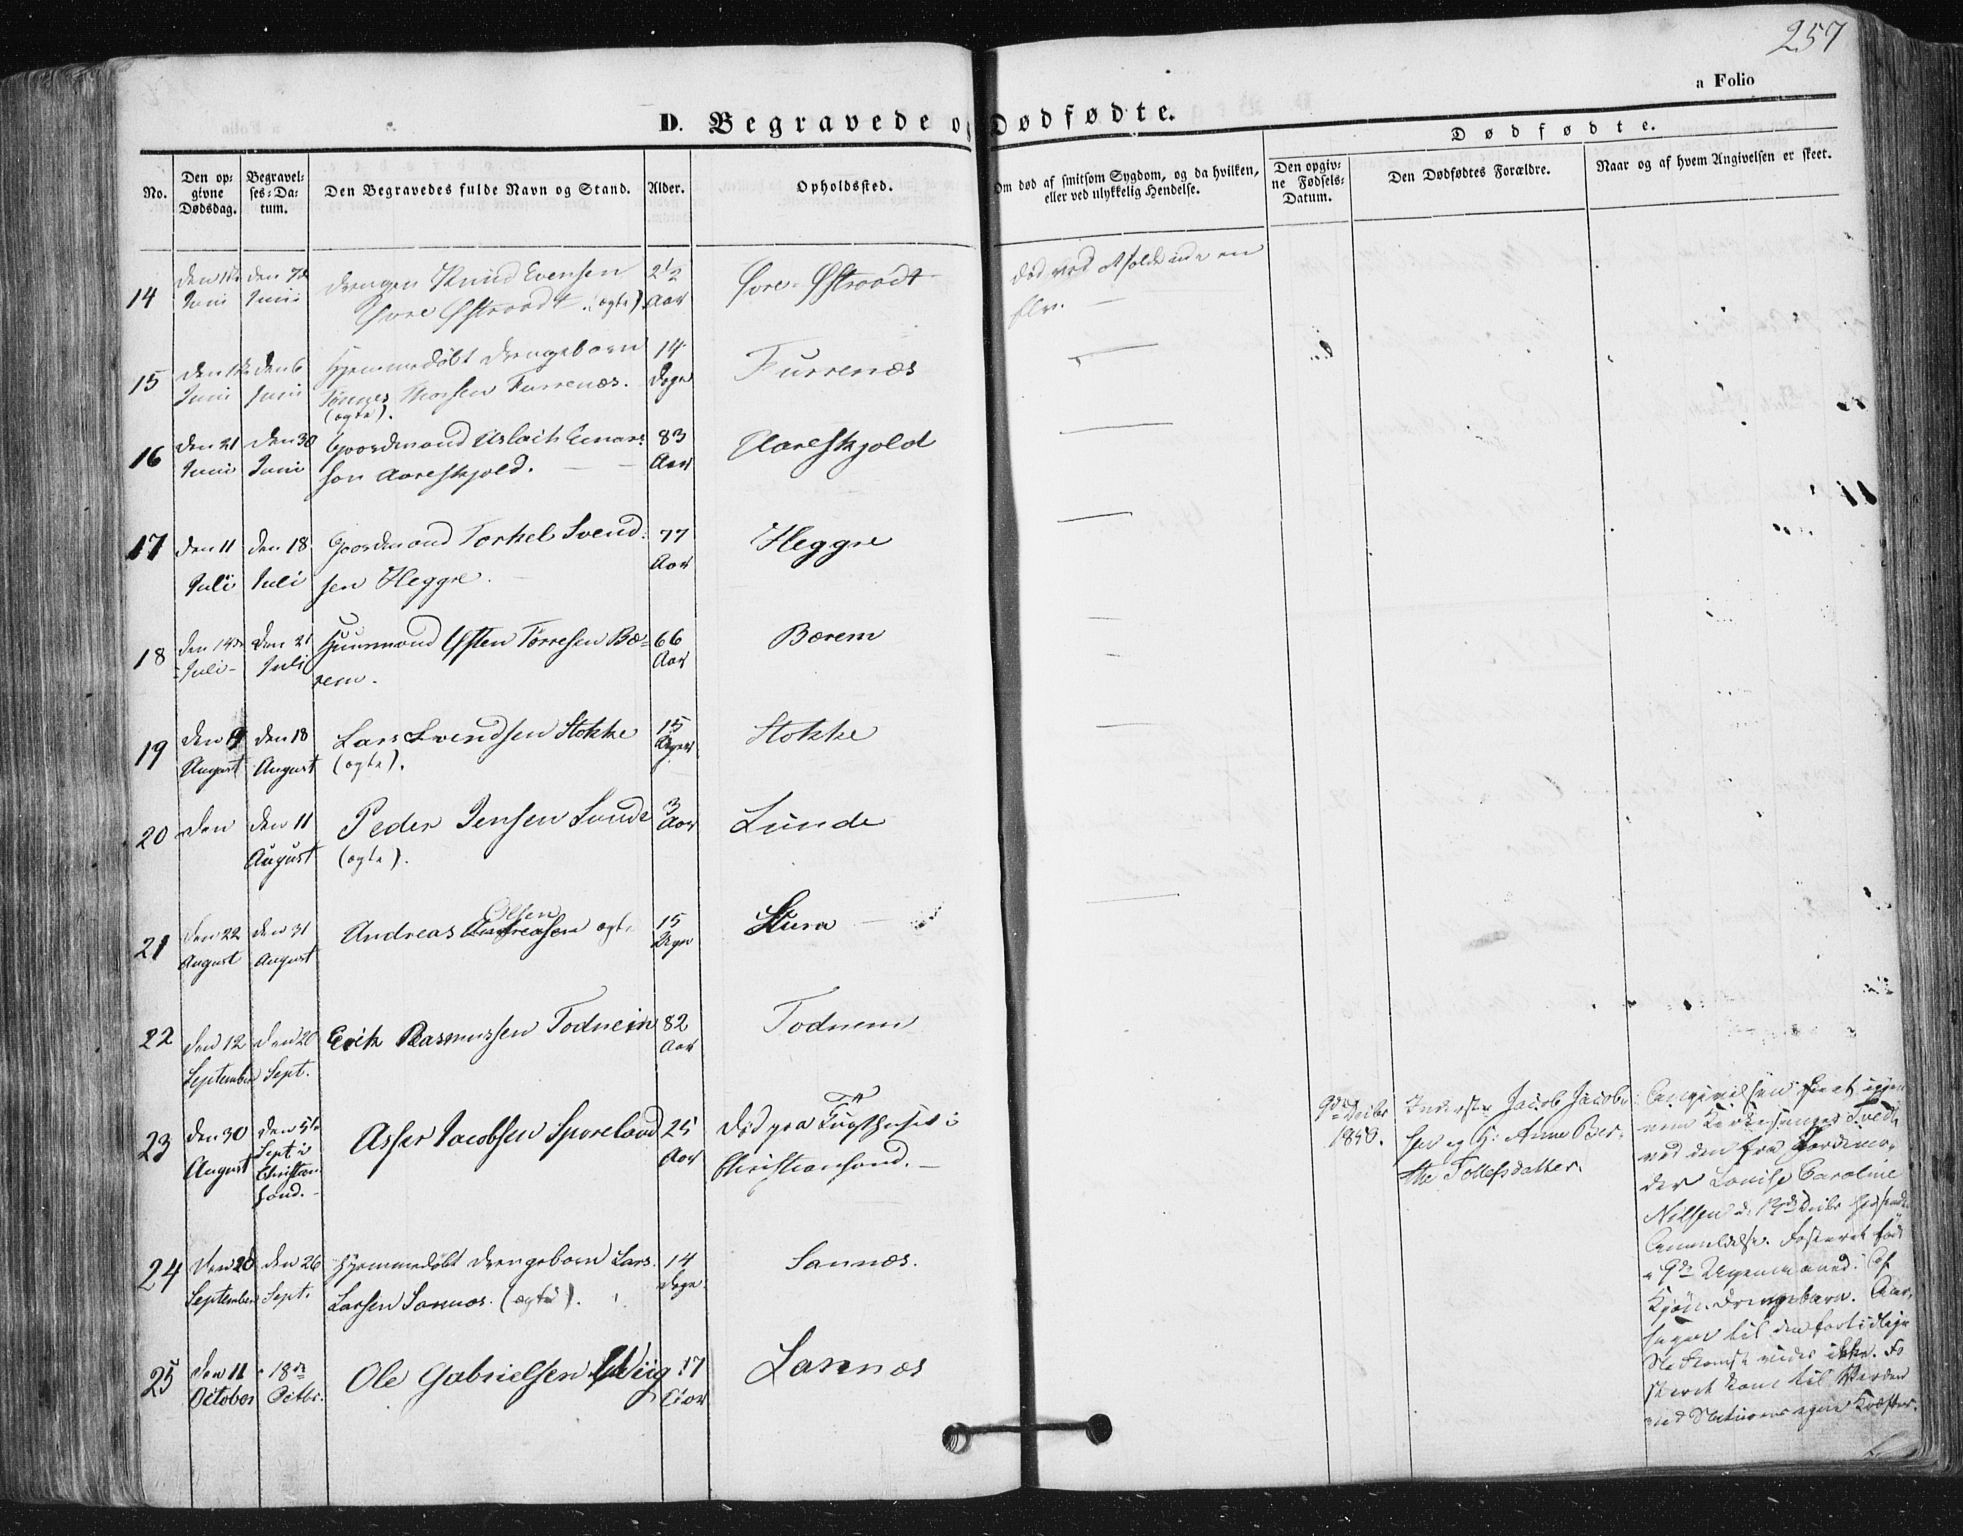 257
a Folio
D. Begravede o
Dødfødte.
Dødfødte.
No.
Den op-
givne
Dødsdag.
Begravel-
ses-Da-
tum.
Den Begravedes fulde Navn og Stand.
Alder.
Opholdssted.
Om død af smitsom Sygdom, og da hvilken,
eller ved ulykkelig Hendelse.
Den opgiv-
ne Fødsels-
Datum.
Den Dødfødtes Forældre.
Naar og af hvem Angivelsen er skeet.
14
Juni
den 7de
Juni
drengen Knud Evensen
Øvre Østraadt (ægte)
2½
Aar
Øvre Østraadt
død ved at falde ud i en
Elv.
15
Juni
den 6
Juni
Hjemmedøbt Drengebarn
Tönnes Thorsen Furrenæs.
(ægte).
14
Dage
Furrenæs
16
den 21
Juni
den 30
Juni
Gaardmand Aslach Einar
sen Aareskjold.
83
Aar
Aareskjold
17
den 11
Juli
den 18
Juli
Gaardmand Torkel Svend
sen Heggre.
77
Aar
Heggre
18
den 14de
Juli
den 21
Juli
Huusmand Østen Tørresen Bæ-
rem.
66
Aar
Bærem
19
den 9
August
den 18
August
Lars Svendsen Stokke
(ægte).
15
Dage
Stokke
20
den
den 11
August
Peder Jensen Lunde
(ægte).
3
Aar
Lunde
21
den 22
August
den 31
August
Olsen
Andreas Andreasen ægte
15
Dage
Stura
22
den 12
September
den 20
Sept.
Erik Rasmussen Todnem
82
Aar
Todnem
23
den 30
August
den 5te
Sept. i
Christian-
sand.
Asser Jacobsen Sporeland
25
Aar
Død paa Tugthuset i
Christiansand.
9de Decbr
1850.
Inderste Jacob Jacob-
sen og H. Anne Ber-
the Tollefsdatter.
Angivelsen skeet igjen
nem Kirkesanger Tvedt
ved den fra Jordemo-
der Lovise Caroline
Nilsen d. 19de Decbr
Anmeldelse. Fosteret født
i 9de Ugemaaned. Af
Kjøn Drengebarn. Aar-
sagen til den fortidlige
Nedkomst vides ikke. Fo
steret kom til Verden
ved Naturens egne Kræfter.
24
den 20
September
den 26
Sept.
Hjemmedøbt Drengebarn Lars
Larsen Sannæs. (ægte).
14
Dage
Sannæs.
25
den 11
October
18de
Octbr.
Ole Gabrielsen Wiig
17
Aar
Sannæs